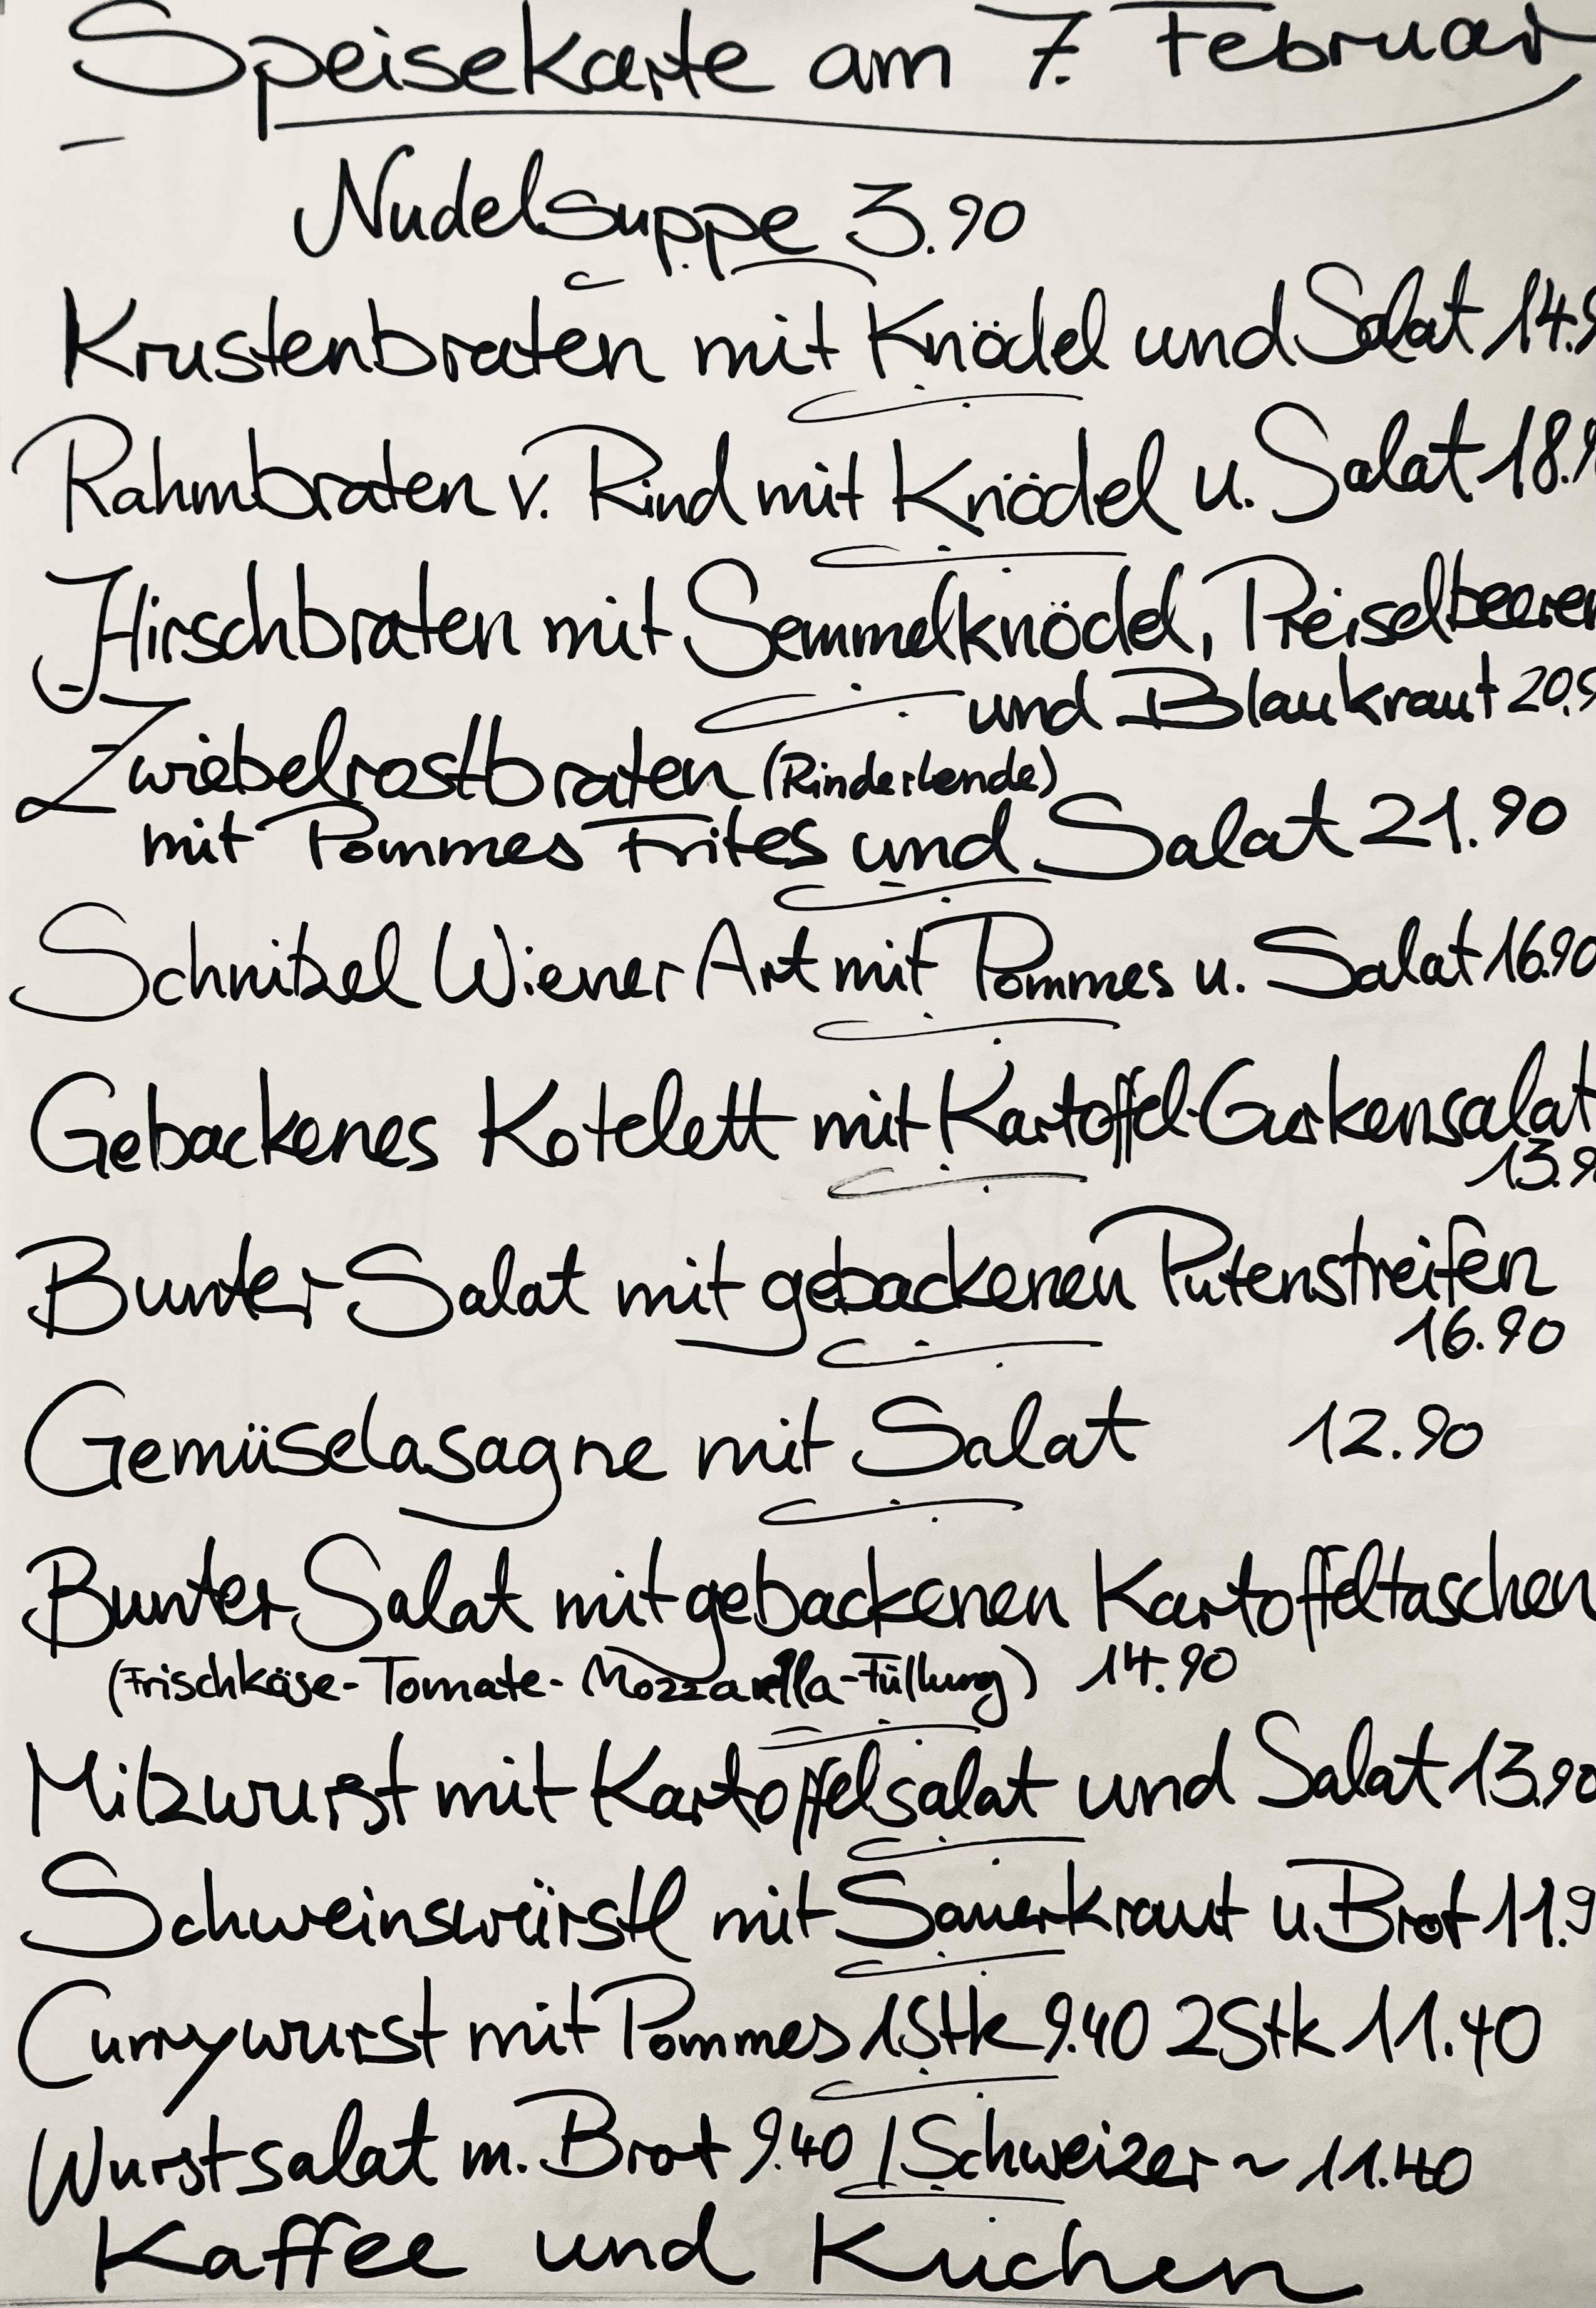 Speisekarte am 7. Februar
Nudelsuppe 3.90
Krustenbraten mit Knödel und Salat 14.9
Rahmbraten v. Rind mit Knödel u. Salat 18.9
Hirschbraten mit Semmelknödel, Preiselbeeren
und Blaukraut 20.9
Zwiebelrostbraten (Rinderlende)
mit Pommes Frites und Salat 21.90
Schnitzel Wiener Art mit Pommes u. Salat 16.90
Gebackenes Kotelett mit Kartoffel-Gurkensalat
13.9
Bunter Salat mit gebackenen Putenstreifen
16.90
Gemüselasagne mit Salat 12.90
Bunter Salat mit gebackenen Kartoffeltaschen
(Frischkäse-Tomate-Mozzarella-Füllung) 14.90
Milzwurst mit Kartoffelsalat und Salat 13.90
Schweinswürstl mit Sauerkraut u. Brot 11.9
Currywurst mit Pommes 1Stk 9.40 2Stk 11.40
Wurstsalat m. Brot 9.40 / Schweizer ~ 11.40
Kaffee und Kuchen